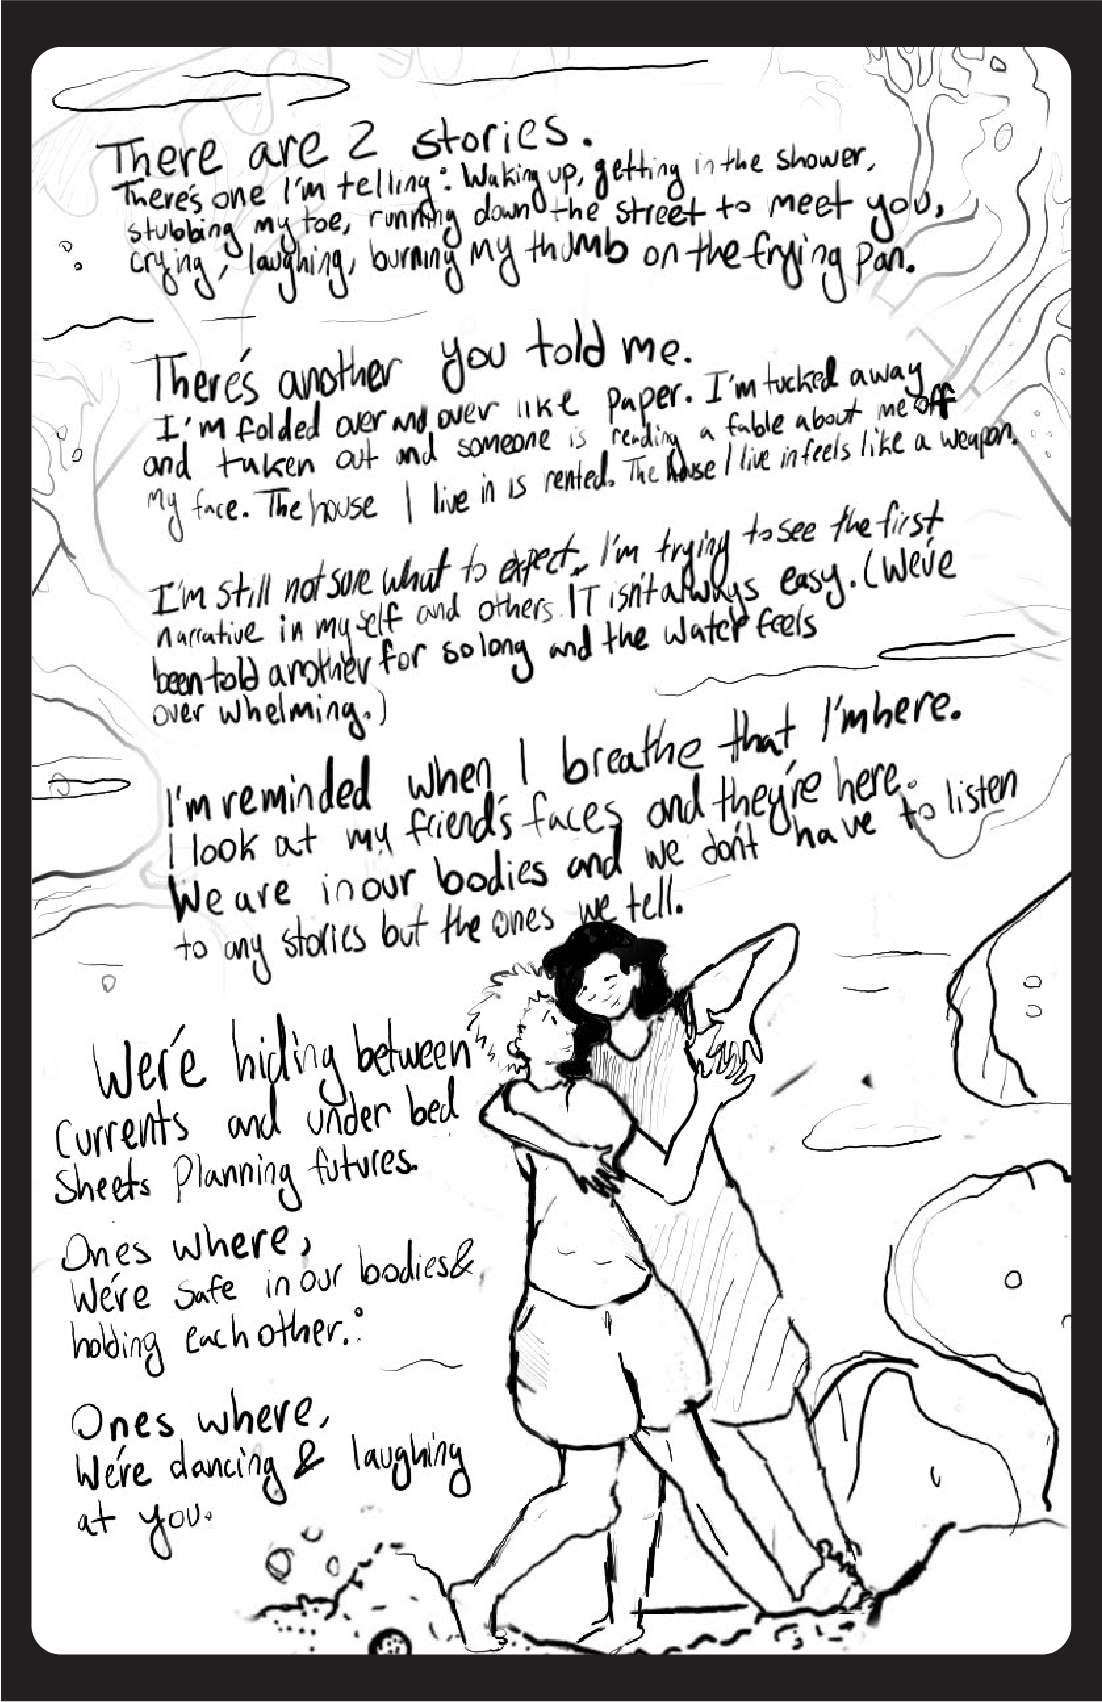 There are 2 stories.
There's one I'm telling: Waking up, getting in the shower,
stubbing my toe, running down the street to meet you,
crying, laughing, burning my thumb on the frying pan.
There's another you told me.
I'm folded over and over like paper. I'm tucked away
and taken out and someone is reading a fable about me off
my face. The house I live in is rented. The house I live in feels like a weapon.
I'm still not sure what to expect. I'm trying to see the first
narrative in myself and others. IT isn't always easy. (We've
been told another for so long and the water feels
over whelming.)
I'm reminded when I breathe that I'm here.
I look at my friend's faces and they're here.
We are in our bodies and we don't have to listen
to any stories but the ones we tell.
We're hiding between
Currents and under bed
Sheets Planning futures.
Ones where,
We're safe in our bodies &
holding each other.:
Ones where,
We're dancing & laughing
at you.